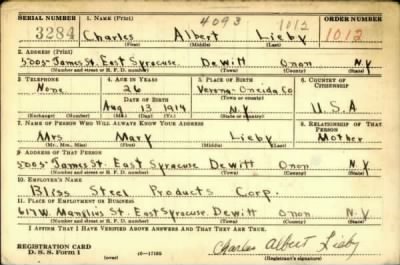 SERIAL NUMBER 1. NAME (Print) 4093 1012 ORDER NUMBER
3284 Charles Albert Lieby 1012
(First) (Middle) (Last)
2. ADDRESS (Print)
500 James St. East Syracuse Dewitt Onon N.Y
(Number and street or R. F. D. number) (Town) (County) (State)
3. TELEPHONE 4. AGE IN YEARS 5. PLACE OF BIRTH 6. COUNTRY OF CITIZENSHIP
None 26 Verona-Oneida Co
(Town or county)
DATE OF BIRTH
Aug 13, 1914 N.Y U.S.A
(Exchange) (Number) (Mo.) (Day) (Yr.) (State or country)
7. NAME OF PERSON WHO WILL ALWAYS KNOW YOUR ADDRESS 8. RELATIONSHIP OF THAT PERSON
Mrs Mary Lieby Mother
(Mr., Mrs., Miss) (First) (Middle) (Last)
9. ADDRESS OF THAT PERSON
500 James St. East Syracuse Dewitt Onon N.Y
(Number and street or R. F. D. number) (Town) (County) (State)
10. EMPLOYER'S NAME
Bliss Steel Products Corp.
11. PLACE OF EMPLOYMENT OR BUSINESS
617 W. Manlius St. East Syracuse. Dewitt Onon N.Y
(Number and street or R. F. D. number) (Town) (County) (State)
I AFFIRM THAT I HAVE VERIFIED ABOVE ANSWERS AND THAT THEY ARE TRUE.
REGISTRATION CARD
D. S. S. Form 1 (over) 16-17105 Charles Albert Lieby
(Registrant's signature)